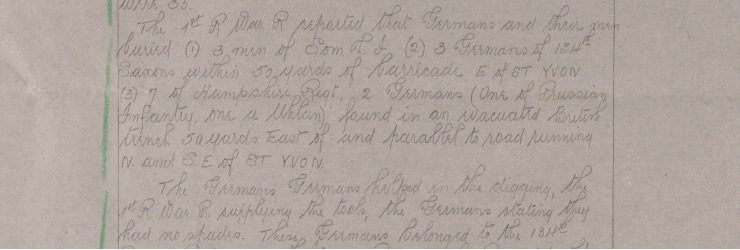 The 1st R War. R reported that Germans and their men
buried (1) 3 men of Som L I, (2) 3 Germans of 134th
Saxons within 50 yards of barricade E of ST YVON
(3) 7 of Hampshire Regt, 2 Germans (One of Prussian
Infantry, one a Uhlan) found in an evacuated British
trench 50 yards East of and parallel to road running
N. and S.E of ST YVON.
The Germans Germans helped in the digging, the
1st R War. R. supplying the tools, the Germans stating they
had no spades. These Germans belonged to the 134th